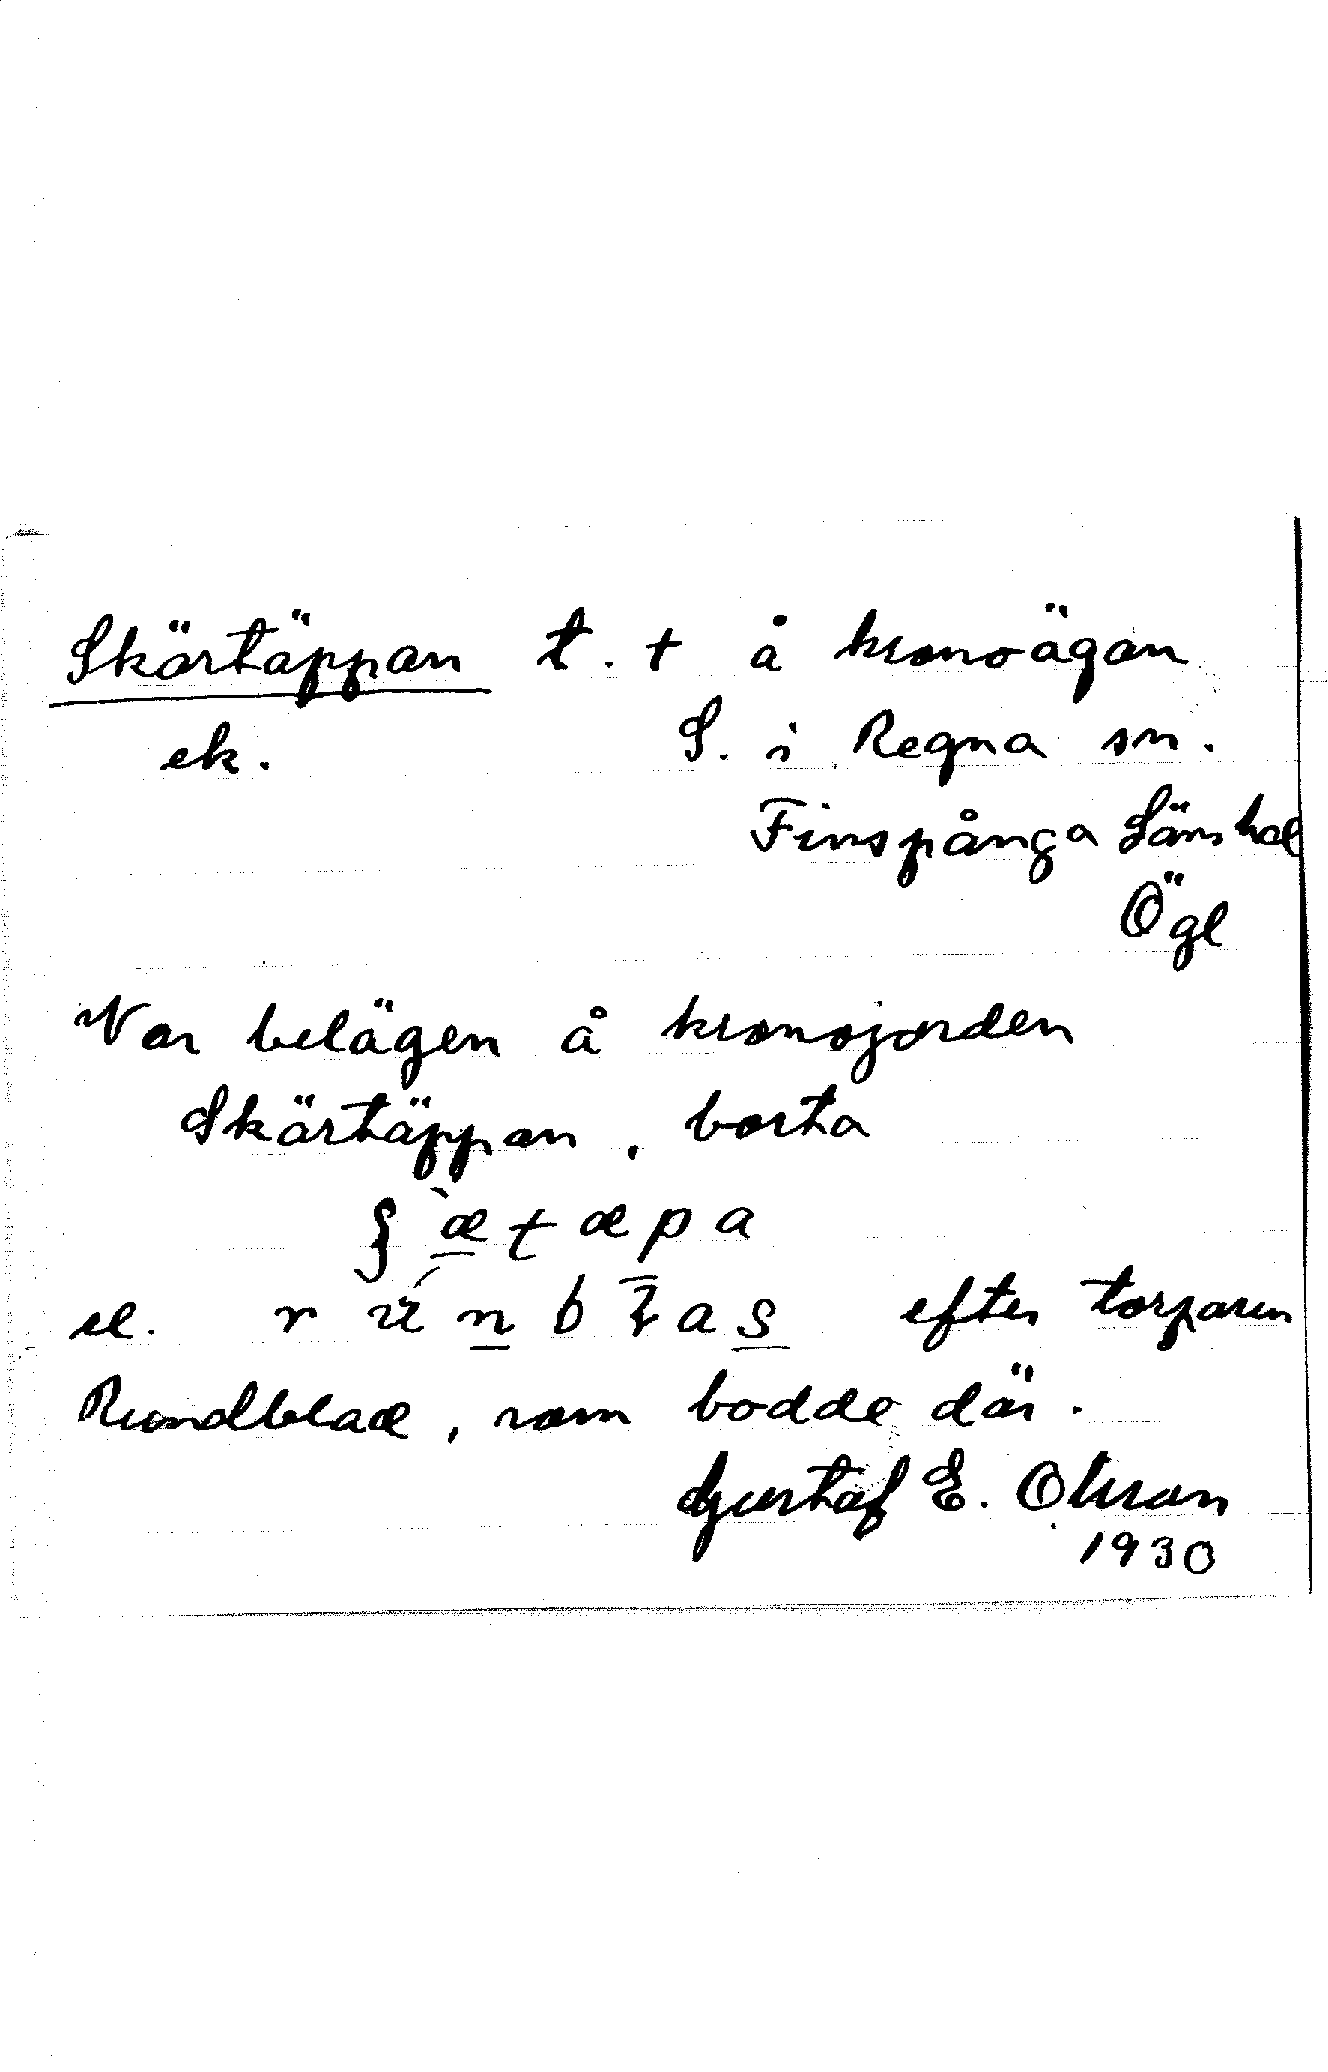 Skärtäppan t. + å kronoägan
ek. S. i Regna sn.
Finspånga Läns hd
Ögl
Var belägen å kronojorden
Skärtäppan, borta
æ t æ p a
el. r n b a s efter torparen
Rundblad, som bodde där.
Gustaf E. Olsson
1930